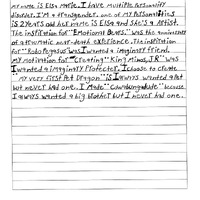 My name is Elsa Marie. I have multiple Personality
disorder. I'm a transgender. one of my Personalities
is 2 years old her name is Elsa and she's a Artist.
The inspiration for "Emotional Bears." was the
of a traumatic near-death experience. The inspiration
for "Robo Pegasus" was I wanted a imaginary friend.
My motivation for "Creating" King Minos, JR" was
I wanted a imaginary Protector. I choose to create
my very first Pet Dragon" is I always wanted a Pet
but never had one. I Made " " because
I always wanted a big brother but I never had one.